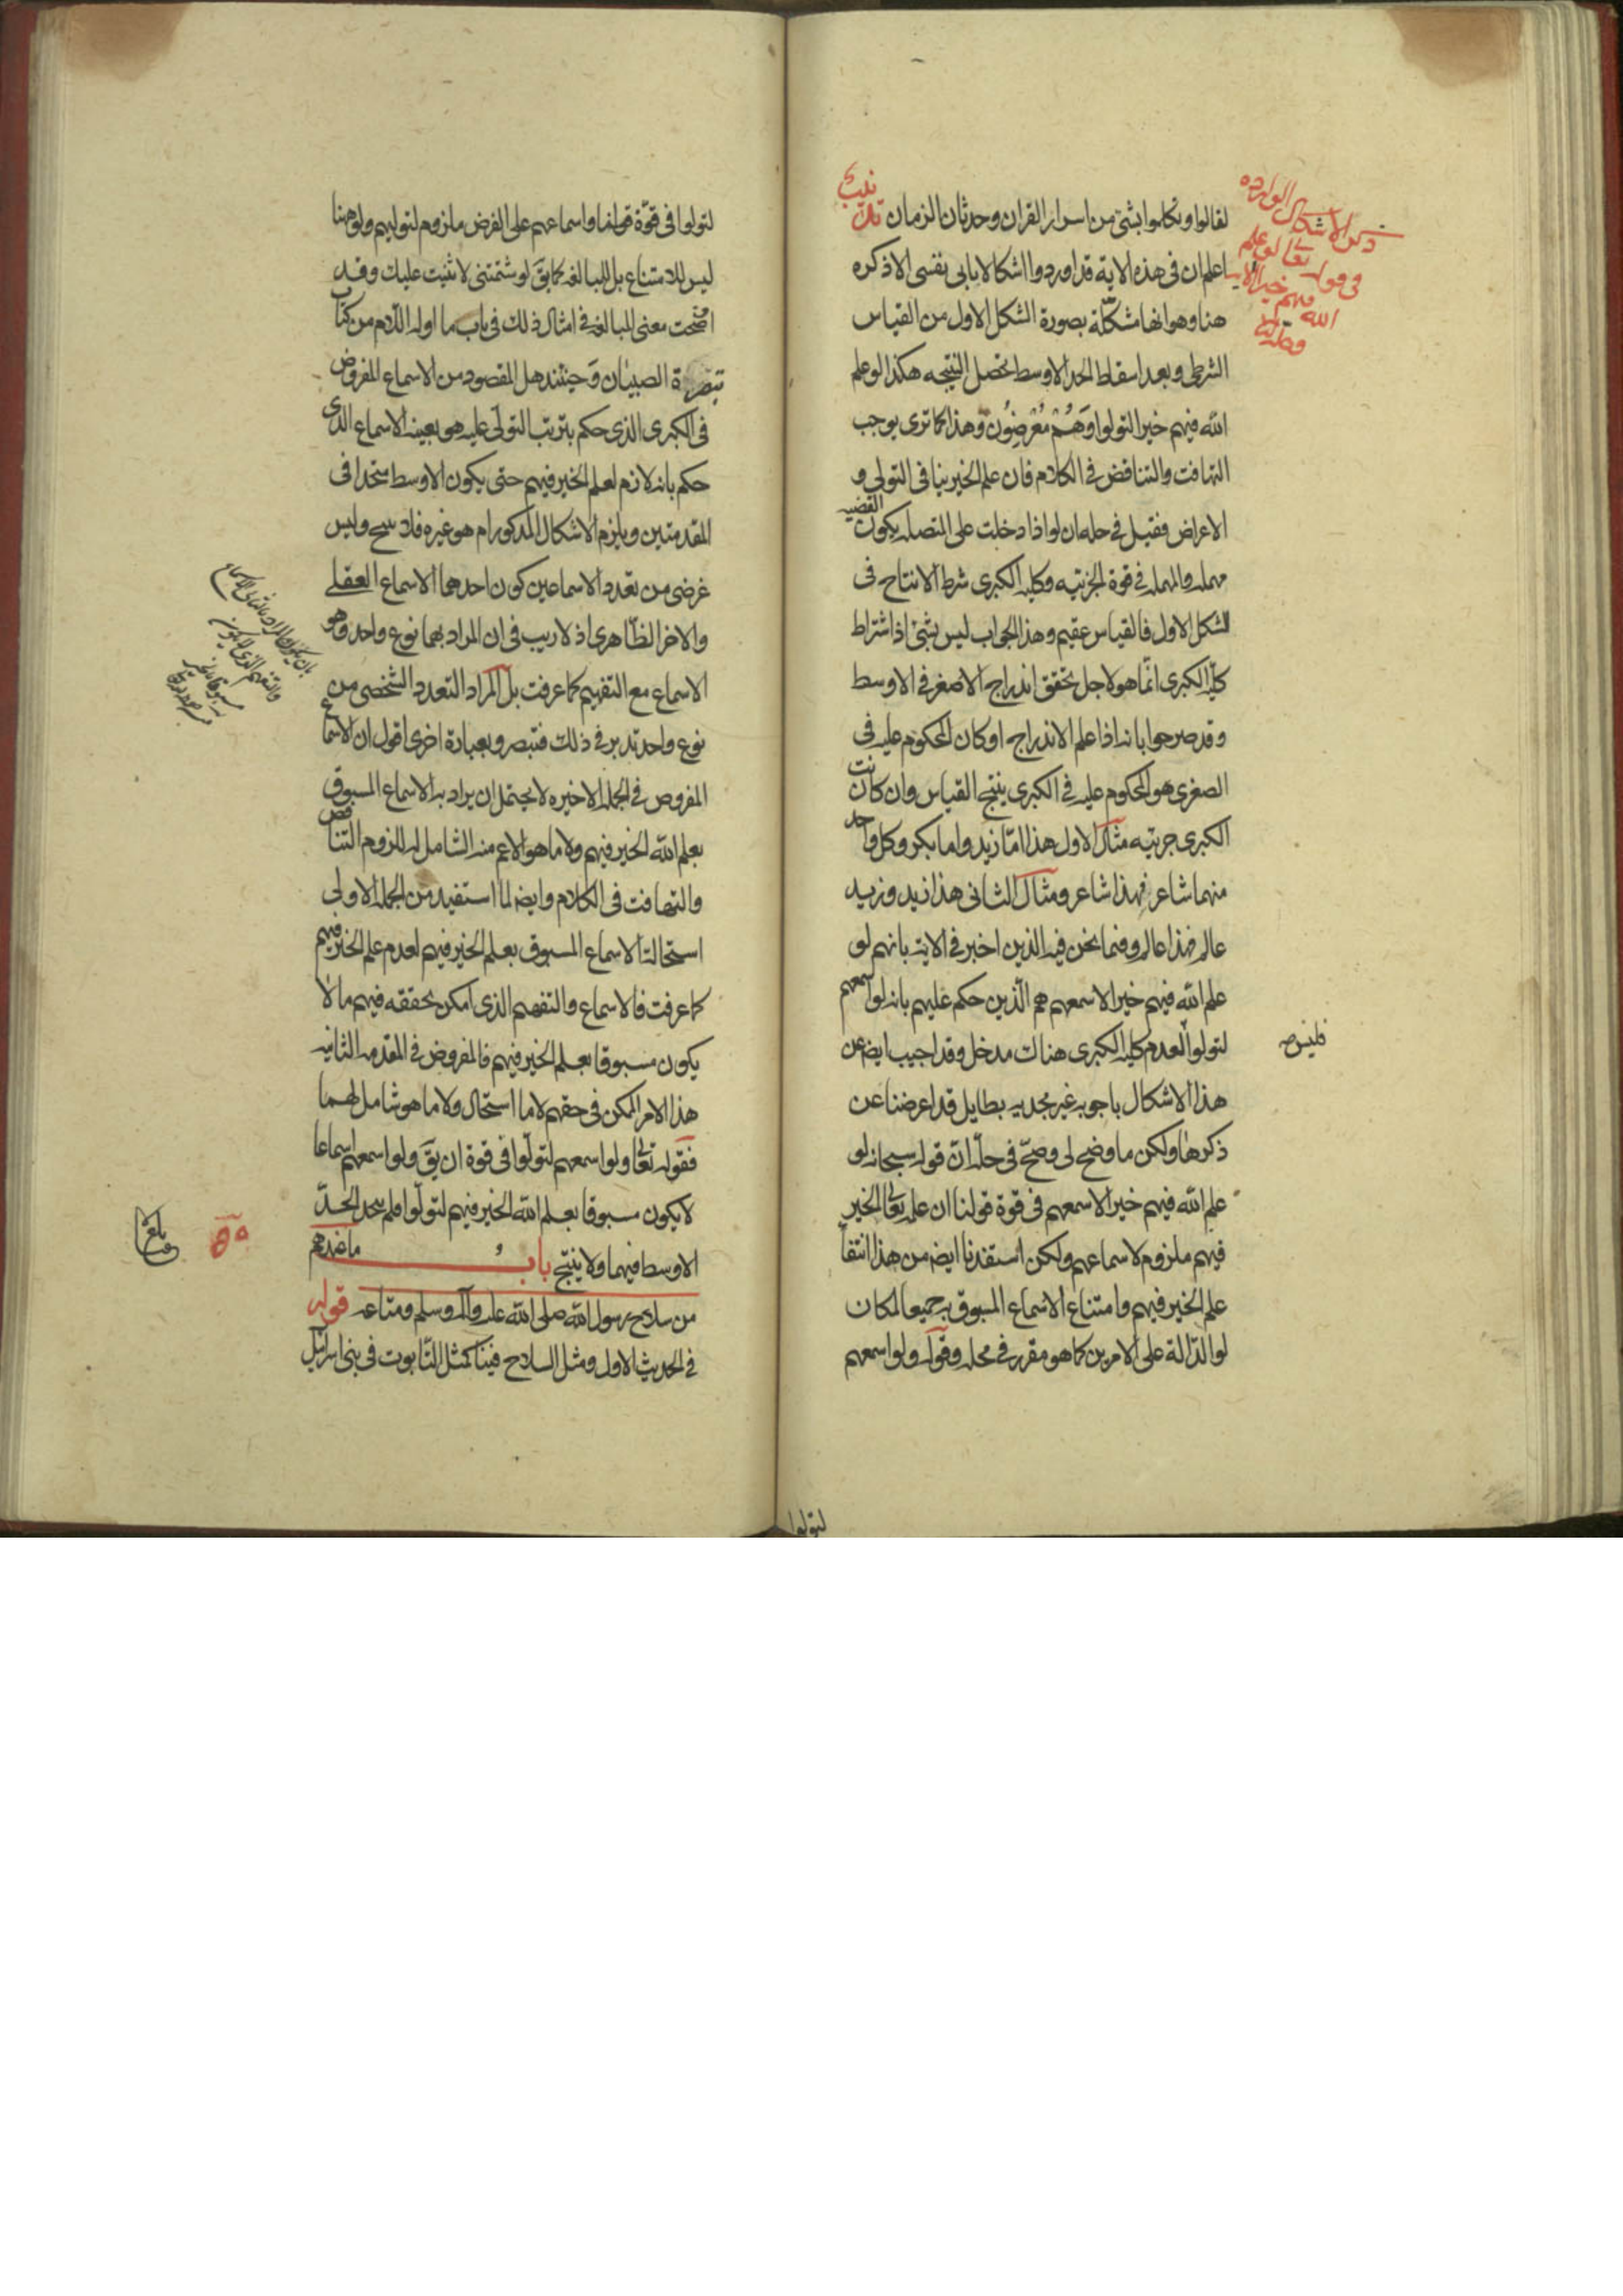 لقالوا وتكلموا بشئ من اسرار القران وحدثان الزمان تذنيب
اعلم ان فى هذه الاية قد اوردوا اشكالا يابى نفسى الا ذكره
هنا وهو انها مشكلة بصورة الشكل الاول من القياس
الشرطى وبعد اسقاط الحد الاوسط تحصل النتيجه هكذا لو علم
الله فيهم خيرا لتولوا وَهُمْ مُعْرِضُون وهذا كما ترى يوجب
التهافت والتناقض فى الكلام فان علم الخير ينافى التولى و
الاعراض فقيل فى حله ان لو اذا دخلت على المتصله يكون القضيه
مهمله والمهمله فى قوة الجزئيه وكليه الكبرى شرط الانتاج فى
الشكل الاول فالقياس عقيم وهذا الجواب ليس بشئ اذ اشتراط
كليه الكبرى انما هو لاجل تحقق اندراج الاصغر فى الاوسط
وقد صرحوا بانه اذا علم الاندراج او كان المحكوم عليه فى
الصغرى هو المحكوم عليه فى الكبرى ينتج القياس وان كانت
الكبرى جزئيه مثال الاول هذا اما زيد واما بكر وكل واحد
منهما شاعر فهذا شاعر ومثال الثانى هذا زيد وزيد
عالم فهذا عالم وفيما نحن فيه الذين اخبر فى الاية بانهم لو
علم الله فيهم خيرا لاسمعهم هم الّذين حكم عليهم بانه لو اسمعهم
لتولوا لعدم كليه الكبرى هناك مدخل وقد اجيب ايضه عن
هذا الاشكال باجوبه غير مجديه بطايل قد اعرضنا عن
ذكرها ولكن ما وضح لى وصحّ فى حلّه انّ قوله سبحانه لو
علم الله فيهم خيرا لاسمعهم فى قوة قولنا ان علمه تعالى الخير
فيهم ملزوم لاسماعهم ولكن استفدنا ايضه من هذا انتفا
علم الخير فيهم وامتناع الاسماع المسبوق به جميعا لمكان
لو الدّالة على الامرين كما هو مقرر فى محله وقوله ولو اسمعهم
ذكر الاشكال الوارده
فى قوله تعالى لو علم
الله فيهم خيرا الايه
فليس
لتولوا
لتولوا فى قوّة قولنا واسماعهم على الفرض ملزوم لتوليهم ولو هنا
ليس للامتناع بل للمبالغه كما يقَ لو شتمتنى لا ثنيت عليك وقد
اوضحت معنى المبالغه فى امثال ذلك فى باب ما اوله اللام من كتاب
تبصرة الصبيان وَحينئذ هل المقصود من الاسماع المفروض
فى الكبرى الذى حكم بترتب التولّى عليه هو بعينه الاسماع الذى
حكم بانه لازم لعلم الخير فيهم حتى يكون الاوسط متحدا فى
المقدمتين ويلزم الاشكال المذكور ام هو غيره فلا وليس
غرضى من تعدد الاسماعين كون احدهما الاسماع العقلى
والاخر الظاهرى اذ لا ريب فى ان المراد بهما نوع واحد وهو
الاسماع مع التفهيم كما عرفت بل المراد التعدد الشخصى من
نوع واحد تدبر فى ذلك فتبصر وبعبارة اخرى اقول ان الاسماع
المفروض فى الجمله الاخيره لا يحتمل ان يراد به الاسماع المسبوق
بعلم الله الخير فيهم ولا ما هو الاعم منه الشامل له للزوم التناقض
والتهافت فى الكلام وايضه لما استفيد من الجمله الاولى
استحالة الاسماع المسبوق بعلم الخير فيهم لعدم علم الخير فيهم
كما عرفت فالاسماع والتفهيم الذى امكن تحققه فيهم ما لا
يكون مسبوقا بعلم الخير فيهم فالمفروض فى المقدمه الثانيه
هذا الامر الممكن فى حقهم لا ما استحال ولا ما هو شامل لهما
فقوله تعالى ولو اسمعهم لتولّوا فى قوة ان يقَ ولو اسمعهم اسماعا
لا يكون مسبوقا بعلم الله الخير فيهم لتولّوا فلم يتحد الحدّ
الاوسط فيهما ولا ينتج باب ما عندهم
من سلاح رسول الله صلى الله عليه وآله وسلم ومتاعه قوله
فى الحديث الاول ومثل السلاح فينا كمثل التابوت فى بنى اسرائيل